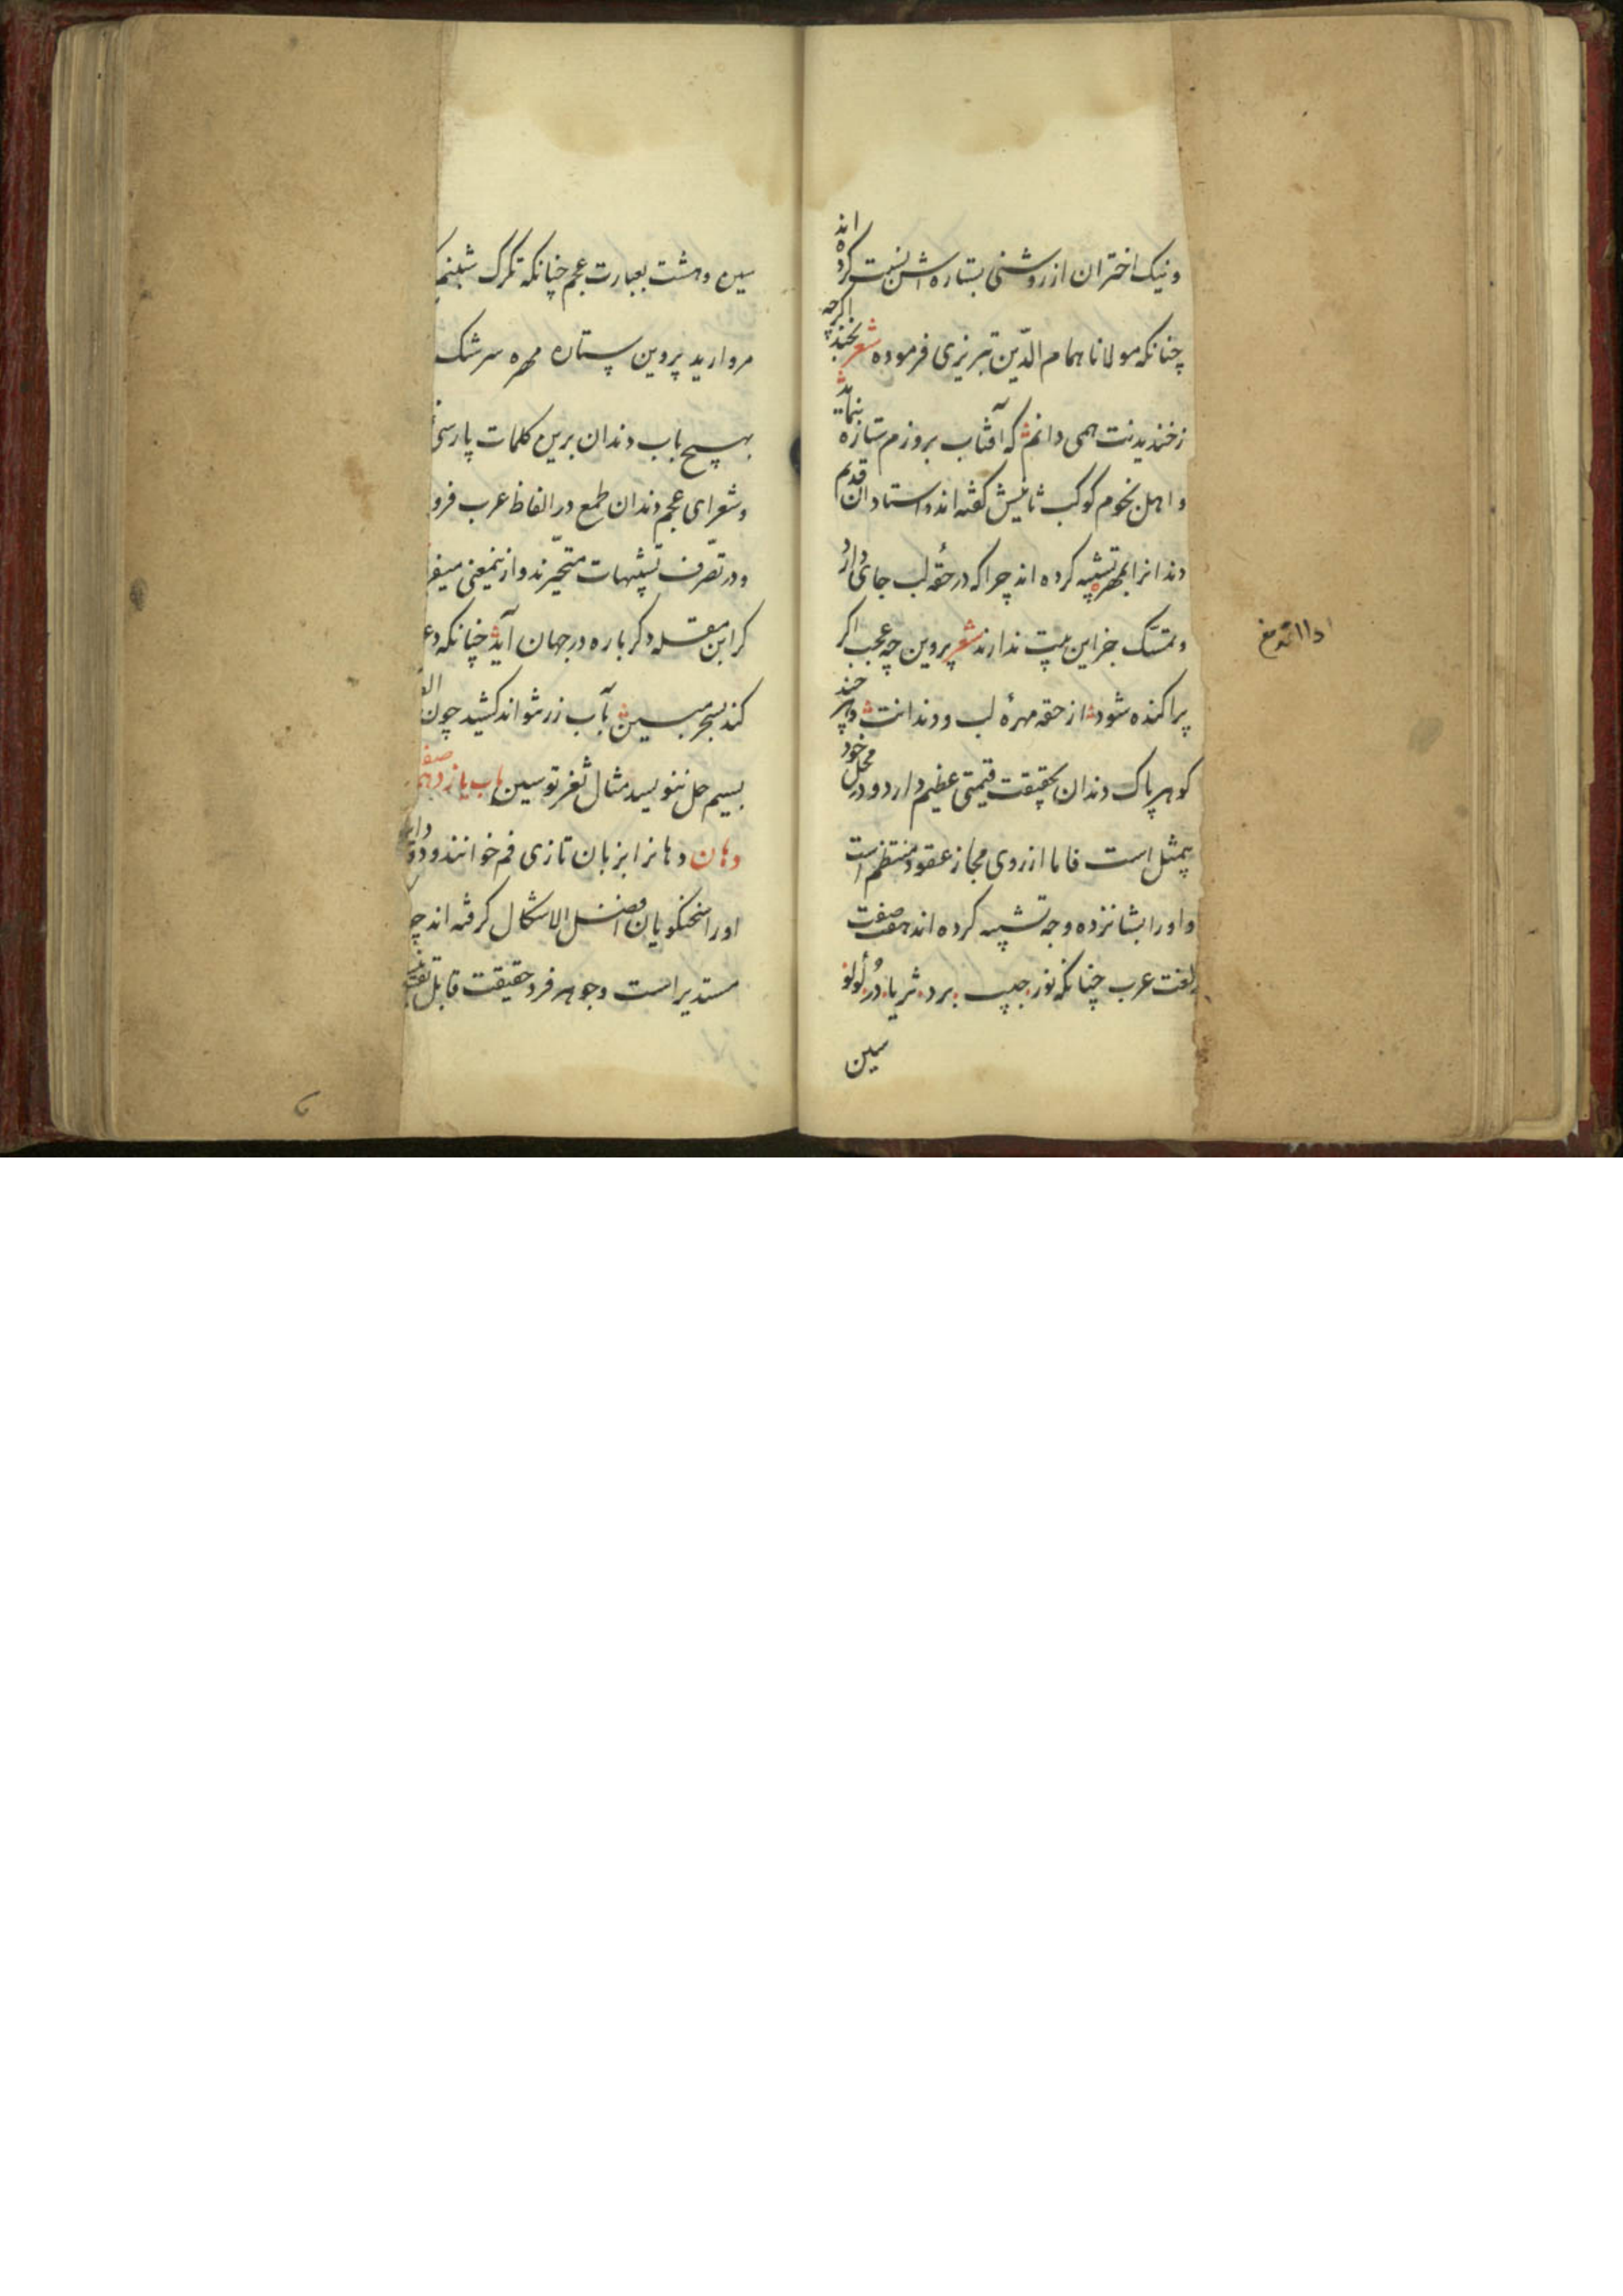 ونیک اختران از روشنی بستاره اش نسبت کرده اند
چنانکه مولانا همام الدّین تبریزی فرموده شعر بخند اکرچه
زخندیدنت همی دانم که آفتاب بروزم ستاره بنماید
و اهل نجوم کوکب ثنائیش کفته اند و استادان قدیم
دندانرا بمهره تشبیه کرده اند چرا که در حقهٔ لب جای دارد
و تمسّک جز این بیت ندارند شعر پروین چه عجب اکر
پراکنده شود از حقه مهرهٔ لب و دندانت هر چند
کوهر پاک دندان بحقیقت قیمتی عظیم دارد و در محل خود
بیمثل است فاما از روی مجاز عقود منتظم است
و او را بشانزده وجه تشبیه کرده اند هشت صفت
بلغت عرب چنانکه نور حبب برد ثریا دُر لُولُو
سین
سین و هشت بعبارت عجم چنانکه تکرک شبنم
مروارید پروین ستاره مهره سرشک
بهیچ باب دندان برین کلمات پارسی
و شعرای عجم دندان طمع در الفاظ عرب فرو
و در تصرّف تشبیهات متحیّرند و ازینمعنی
کر ابن مقله دکر باره در جهان آید چنانکه
کند بسحر مبین بآب زر نتواند کشید چون الف
بسیم حل ننویسد مثال ثغر تو سین باب یازدهم صفت
دهان دهانرا بزبان تازی فم خوانند و
او را سخنکویان افضل الاشکال کرفته اند
مستدیر است و جوهر فرد حقیقت قابل